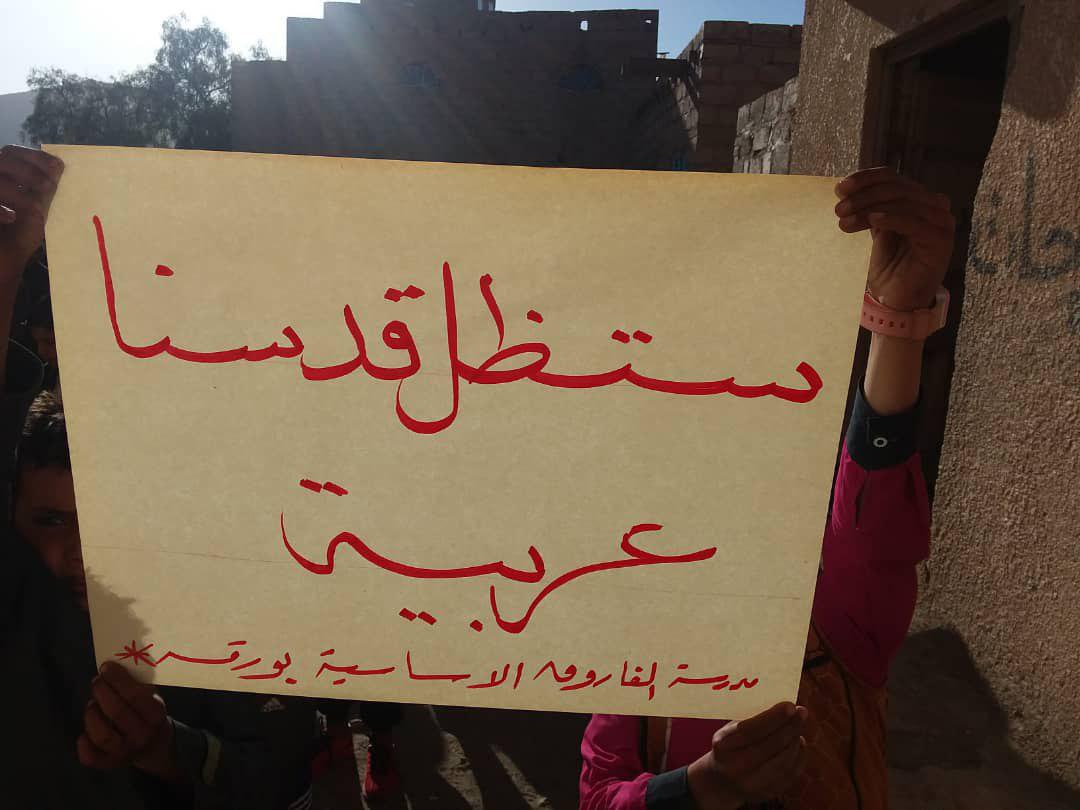 ستظل قدسنا
عربية
مدرسة الفاروق الاساسية بورقس*